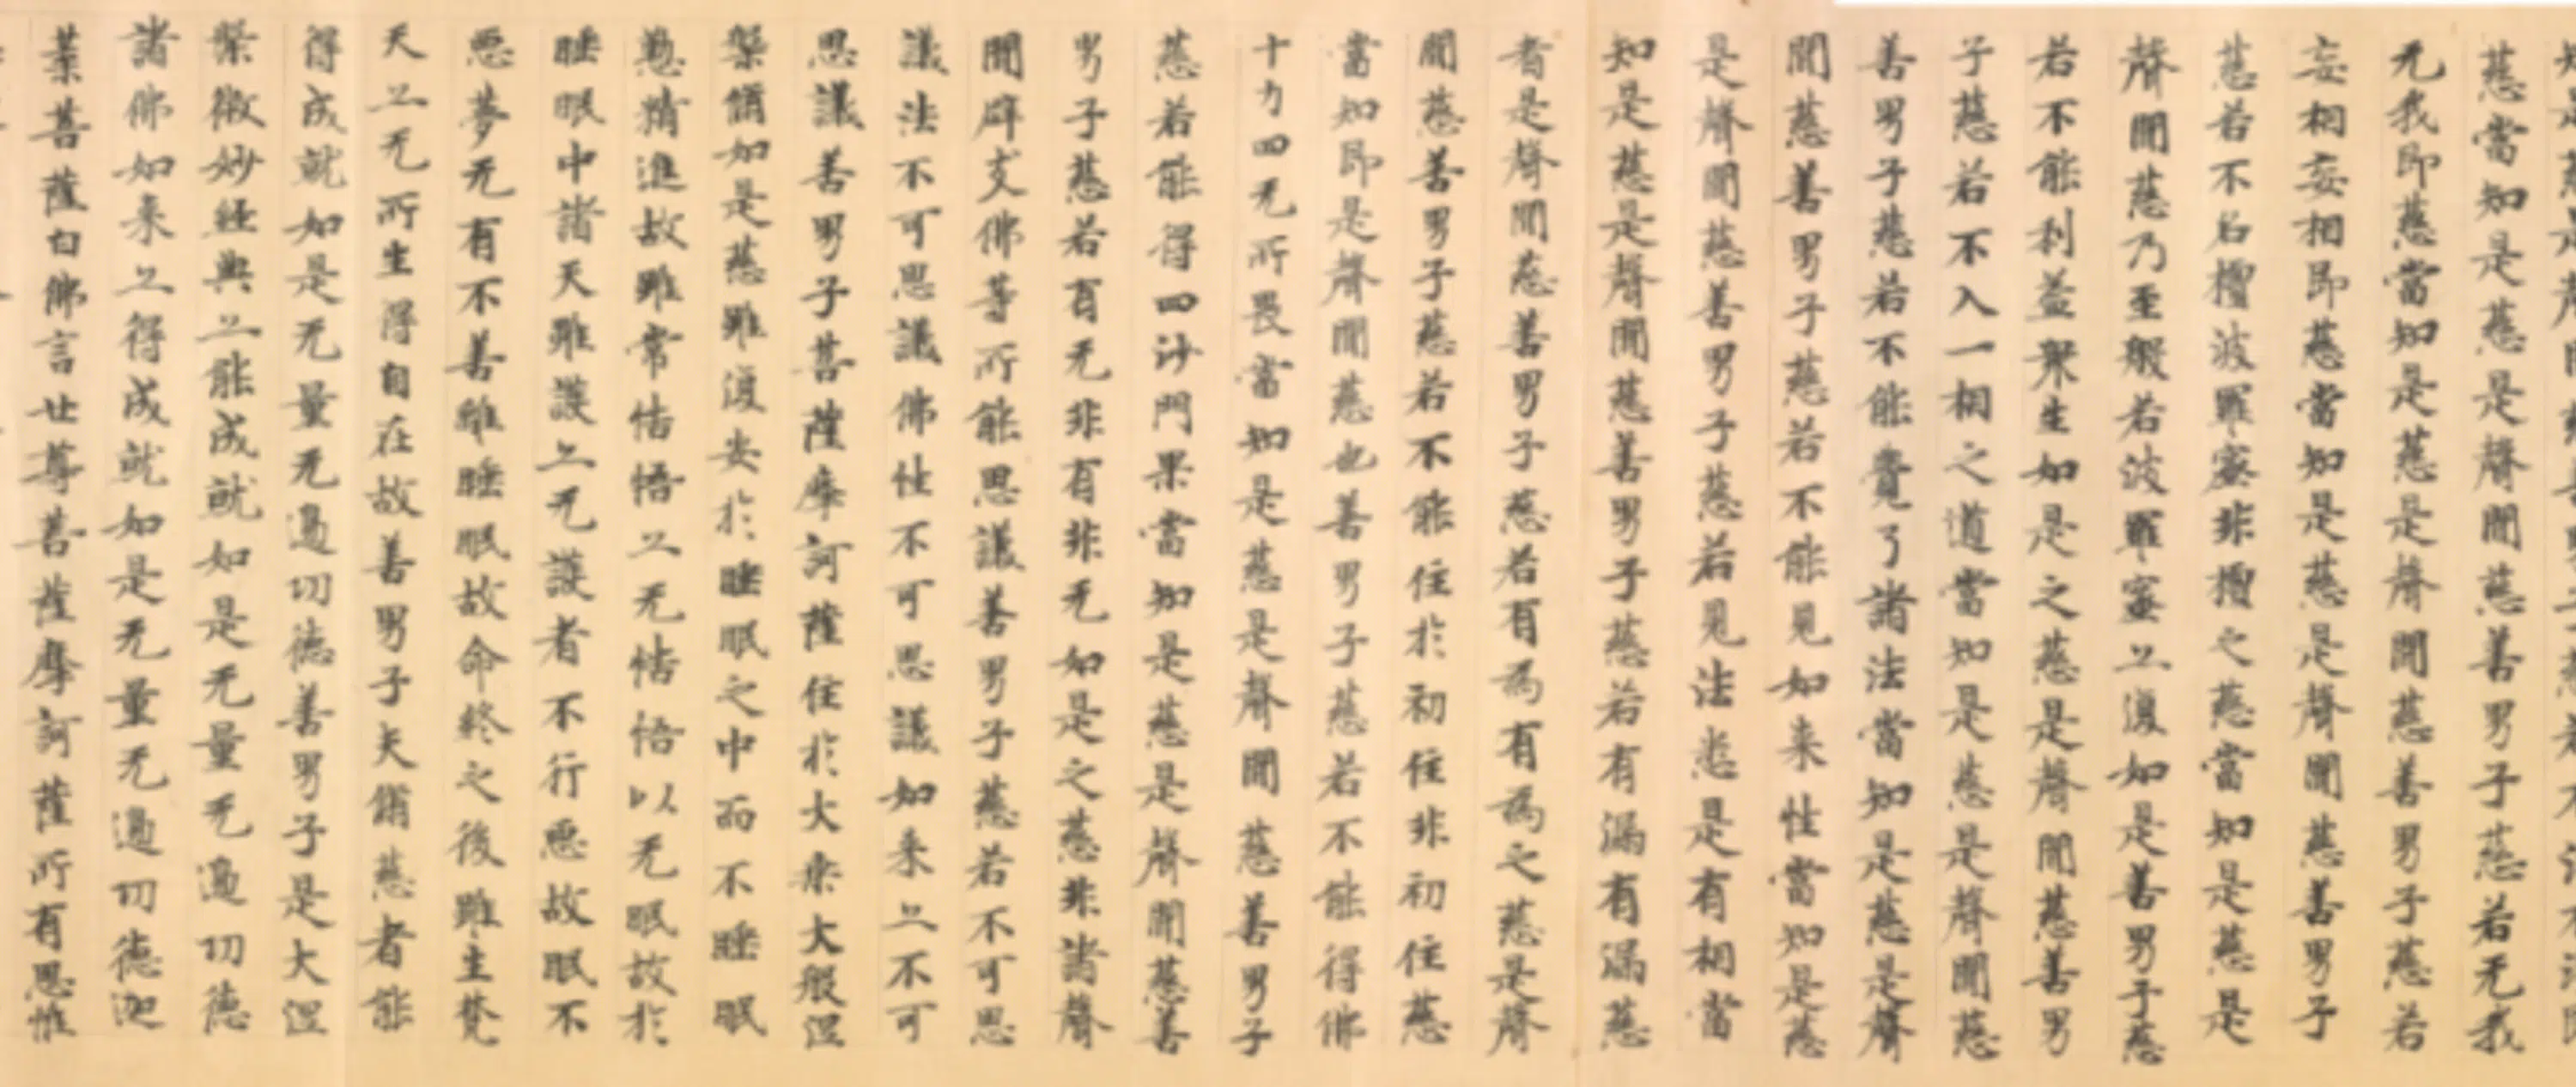 慈當知是慈是聲聞慈善男子慈若无我
无我即慈當知是慈是聲聞慈善男子慈若
妄相妄相即慈當知是慈是聲聞慈善男子
慈若不名檀波羅蜜非檀之慈當知是慈是
聲聞慈乃至般若波羅蜜亦復如是善男子慈
若不能利益衆生如是之慈是聲聞慈善男
子慈若不入一相之道當知是慈是聲聞慈
善男子慈若不能覺了諸法當知是慈是聲
聞慈善男子慈若不能見如来性當知是慈
是聲聞慈善男子慈若見法悉是有相當
知是慈是聲聞慈善男子慈若有漏有漏慈
者是聲聞慈善男子慈若有為有為之慈是聲
聞慈善男子慈若不能住於初住非初住慈
當知即是聲聞慈也善男子慈若不能得佛
十力四无所畏當知是慈是聲聞慈善男子
慈若能得四沙門果當知是慈是聲聞慈善
男子慈若有无非有非无如是之慈非諸聲
聞辟支佛等所能思議善男子慈若不可思
議法不可思議佛性不可思議如来亦不可
思議善男子菩薩摩訶薩住於大乘大般涅
槃脩如是慈雖復安於睡眠之中而不睡眠
懃精進故雖常恬悟亦无恬悟以无眠故於
睡眠中諸天雖護亦无護者不行惡故眠不
惡夢无有不善離睡眠故命終之後雖生梵
天亦无所生得自在故善男子夫脩慈者能
得成就如是无量无邊功德善男子是大涅
槃微妙經典亦能成就如是无量无邊功德
諸佛如来亦得成就如是无量无邊功德迦
葉菩薩白佛言世尊菩薩摩訶薩所有思惟